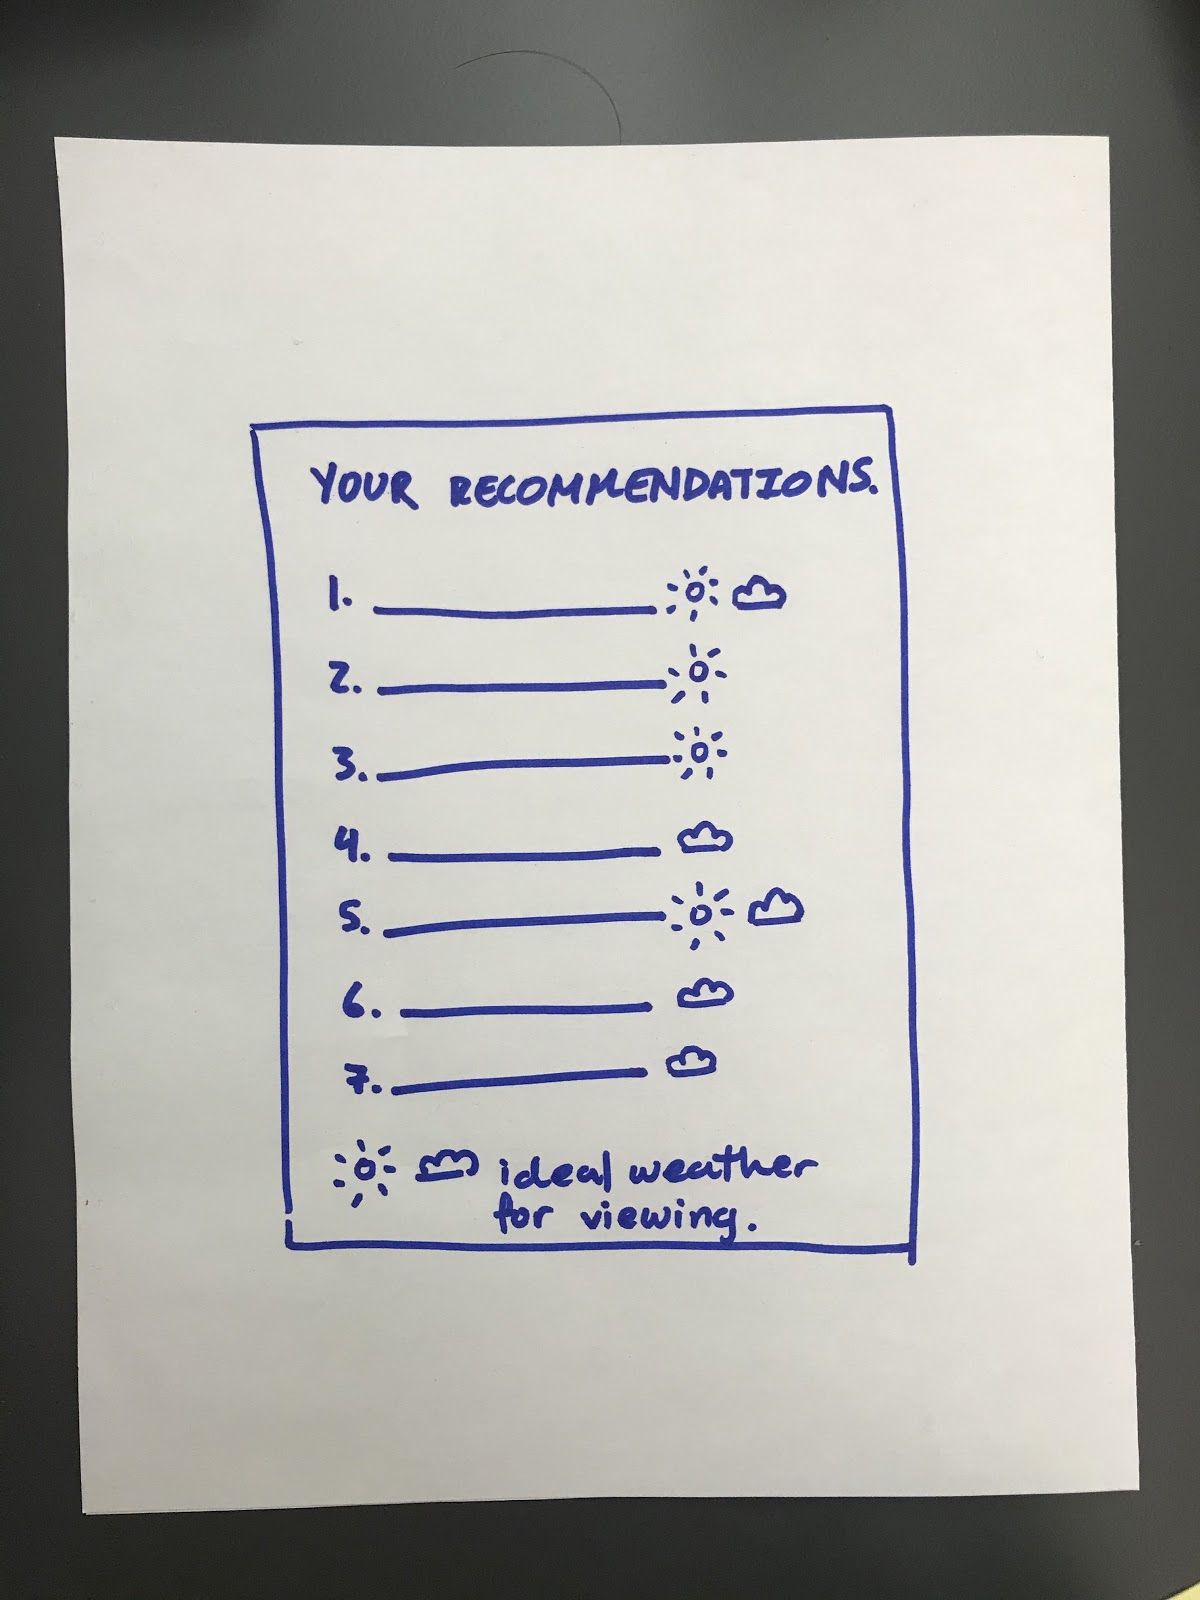 YOUR RECOMMENDATIONS.
1.
2.
3.
4.
5.
6.
7.
ideal weather
for viewing.